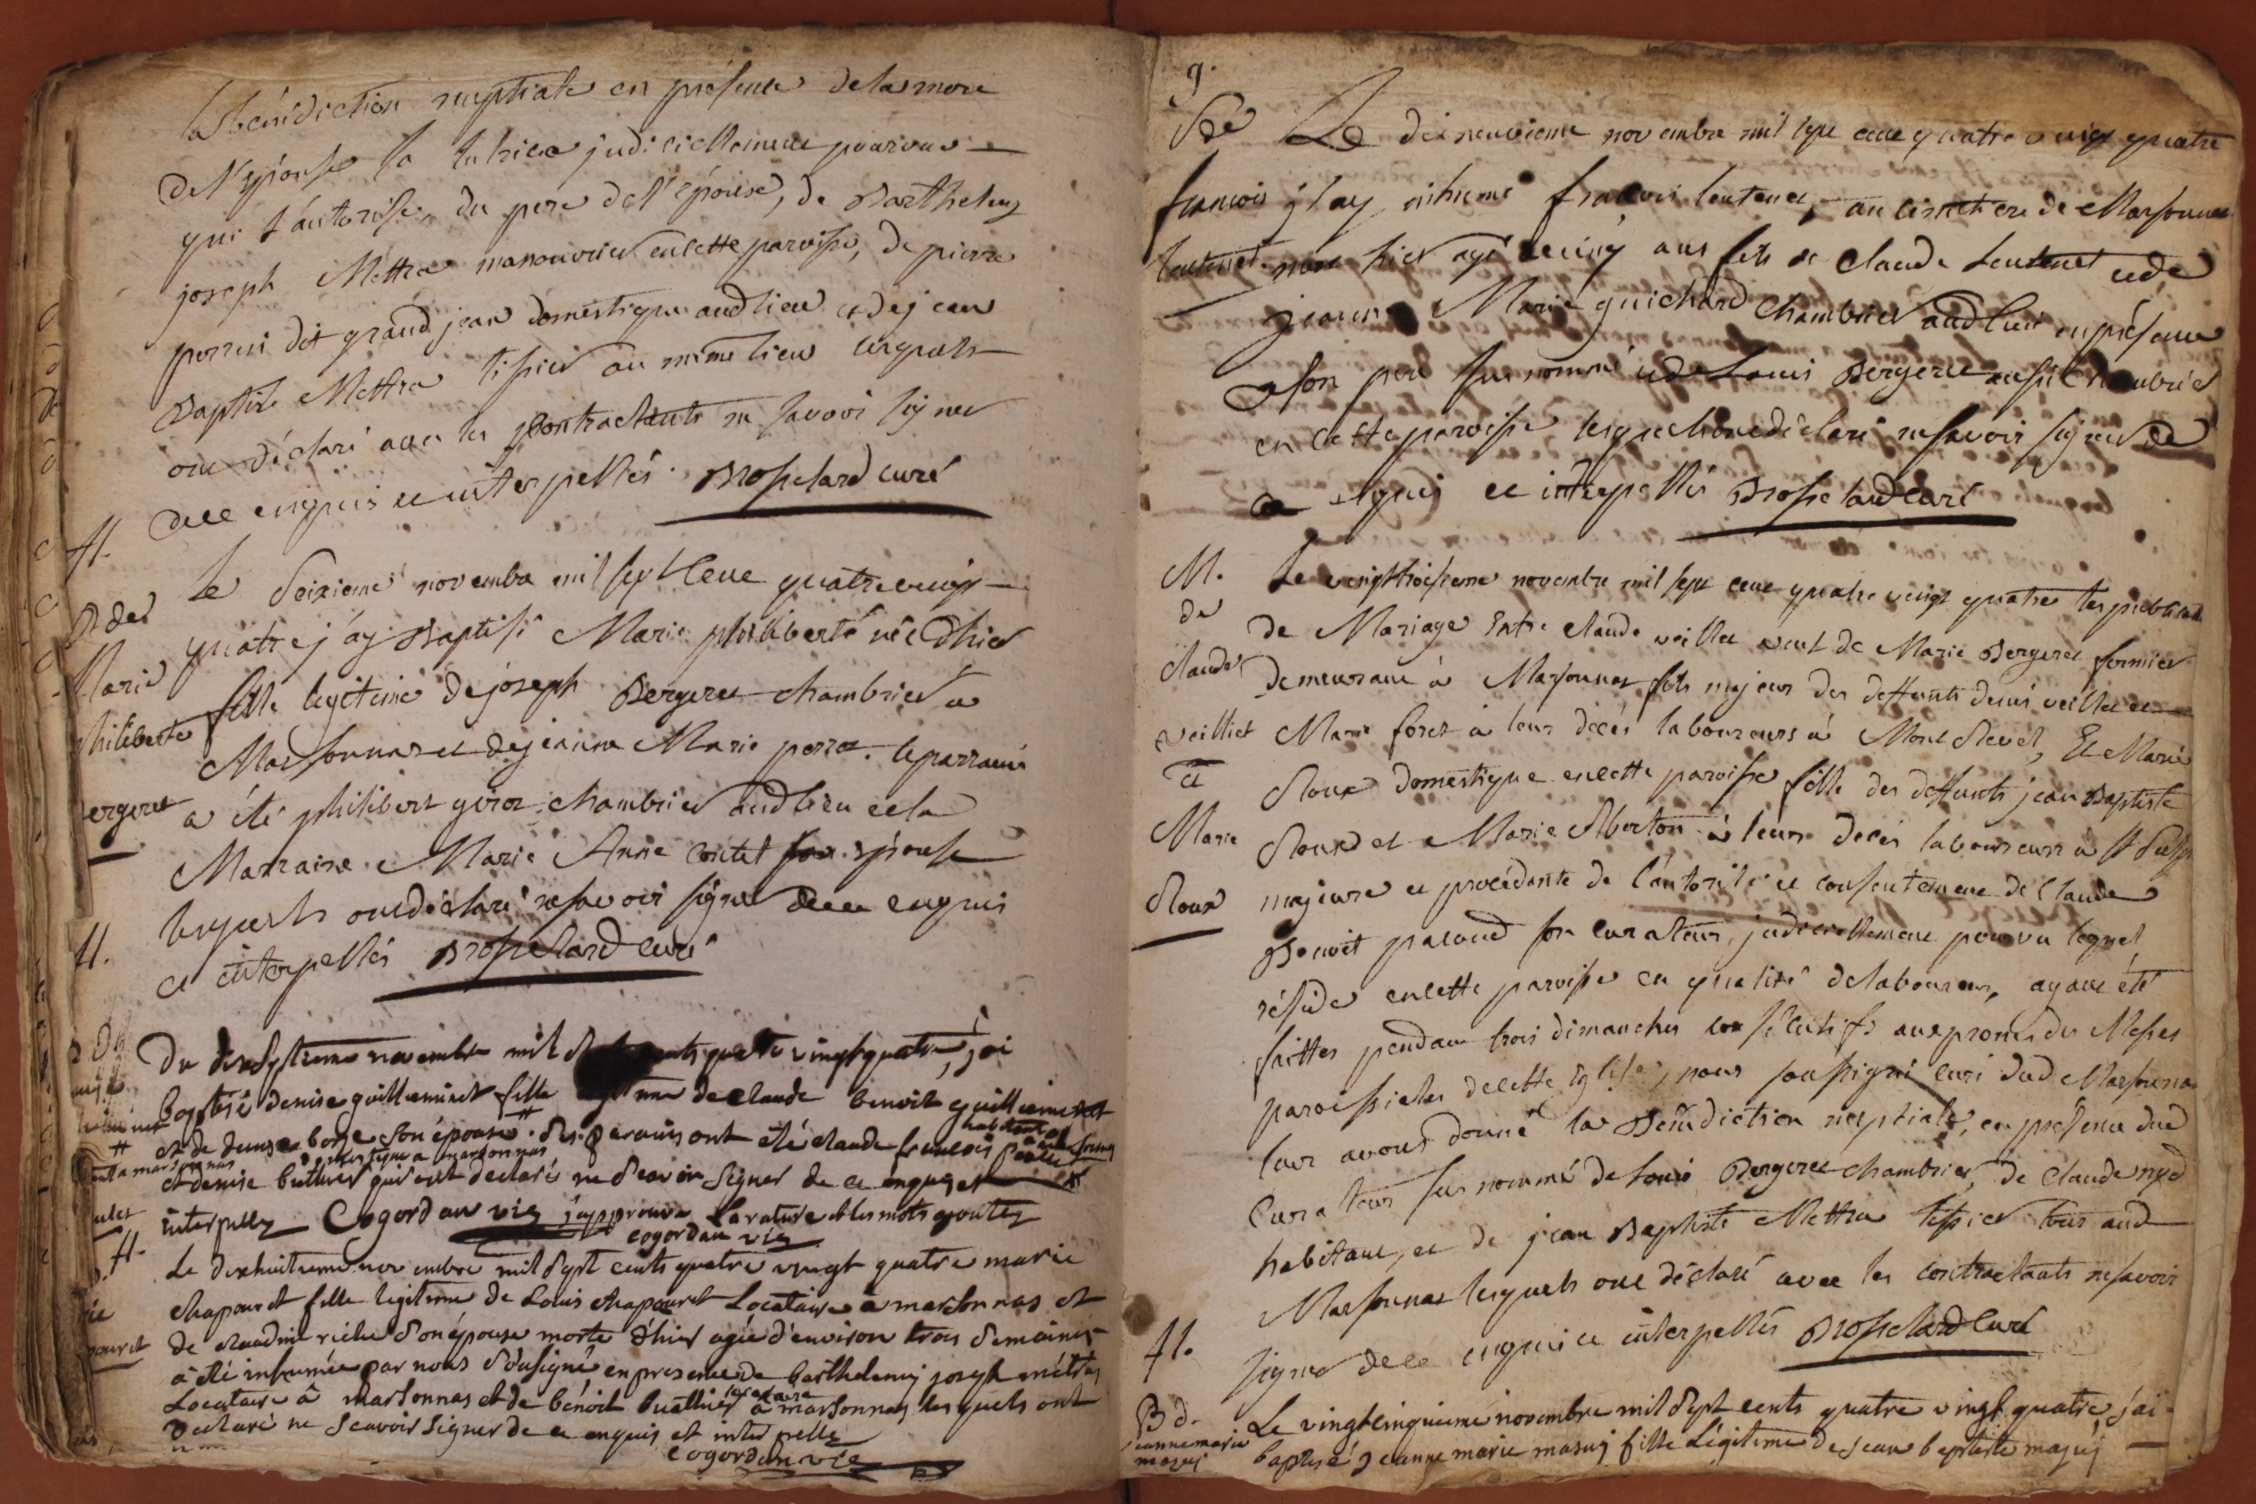 la bénédiction nuptiale en présence de la mere
de l'épouse sa tutrice judiciellement pourvue
qui l'autorise, du pere de l'épouse, de Barthelemy
joseph Mettra manouvrier en cette paroisse, de pierre
perrin dit grand jean domestique aud lieu et de jean
Baptiste Mettra tissier au même lieu lesquels
ont déclaré avec les contractants ne savoir signer
de ce enquis et interpellés. Brosselard curé
H.
Le seizieme novembre mil sept cent quatre vingt
quatre j'ay Baptisé Marie philiberte née d'hier
fille legitime de joseph Bergeret chambrier à
Marsonnas et de jeanne Marie perret. le parrain
a été philibert giroz chambrier aud lieu et la
Marraine Marie Anne contet son épouse
lesquels ont déclaré ne savoir signer de ce enquis
et interpellés Brosselard curé
B de
Marie
philiberte
Bergeret
H.
Du dixseptieme novembre mil sept cents quatre vingt quatre, j'ai
baptisé denise guilleminet fille legitime de claude benoit guilleminet habitant
et de denise borge son épouse. Les parains ont été claude francois
domestique a marsonnas
et denise buthier qui ont declarés ne sçavoir signer de ce enquis et
interpellez Cogordan vic j'approuve la rature et les mots ajoutez
cogordan vic
H.
Le dixhuitieme novembre mil sept cents quatre vingt quatre marie
chapouret fille legitime de Louis chapouret Locataire à marsonnas et
de claudine riche son épouse morte d'hier agée d'environ trois semaines
a été inhumée par nous soussigné en presence de barthelemy joseph métra
locataire
Locataire à marsonnas et de bénoit buathier à marsonnas lesquels ont
declaré ne scavoir signer de ce enquis et interpellé
cogordan vic
9.
Sre
françois
loutenet
Le dixneuvieme novembre mil sept cent quatre vingt quatre
j'ay inhumé françois loutenet, au cimetiere de Marsonnas
mort hier agé de cinq ans fils de Claude Loutenet et de
jeanne Marie guichard Chambrier aud lieu en présence
de son pere susnommé et de Louis Bergeret aussi Chambrier
en cette paroisse lesquels ont déclaré ne savoir signer de
ce enquis et interpellés Brosselard curé
M.
de
claude
veilliet
et
Marie
Roux
Le vingttroisieme novembre mil sept cent quatre vingt quatre les publications
de Mariage Entre claude veillet veuf de Marie Bergeret fermier
demeurant à Marsonnas fils majeur des deffunts denis veillet et
Marie forez à leur décés laboureurs à Mont Revel, Et Marie
Roux domestique en cette paroisse fille des deffunts jean Baptiste
Roux et Marie Aberton à leurs décés laboureurs à St
majeure et procédante de l'autorité et consentement de Claude
Benoit pacoud son curateur judiciellement pourvu lequel
réside en cette paroisse en qualité de laboureur, ayant été
faittes pendant trois dimanches consécutifs aux prones des Messes
paroissiales de cette Eglise, nous soussigné curé dud Marsonnas
leur avons donné la Bénédiction nuptiale, en présence dud
curateur susnommé de Louis Bergeret chambrier, de claude nyd
habitant, et de jean Baptiste Mettra tissier tous aud
Marsonnas lesquels ont déclaré avec les contractants ne savoir
signer de ce enquis et interpellés Brosselard curé
H.
B d.
jeanne marie
masuy
Le vingtcinquieme novembre mil sept cents quatre vingt quatre, j'ai
baptisé jeanne marie masuy fille Légitime de jean baptiste masuy